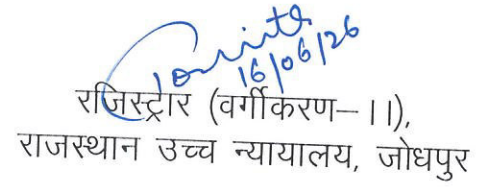 16/06/26
रजिस्ट्रार (वर्गीकरण–।।),
राजस्थान उच्च न्यायालय, जोधपुर